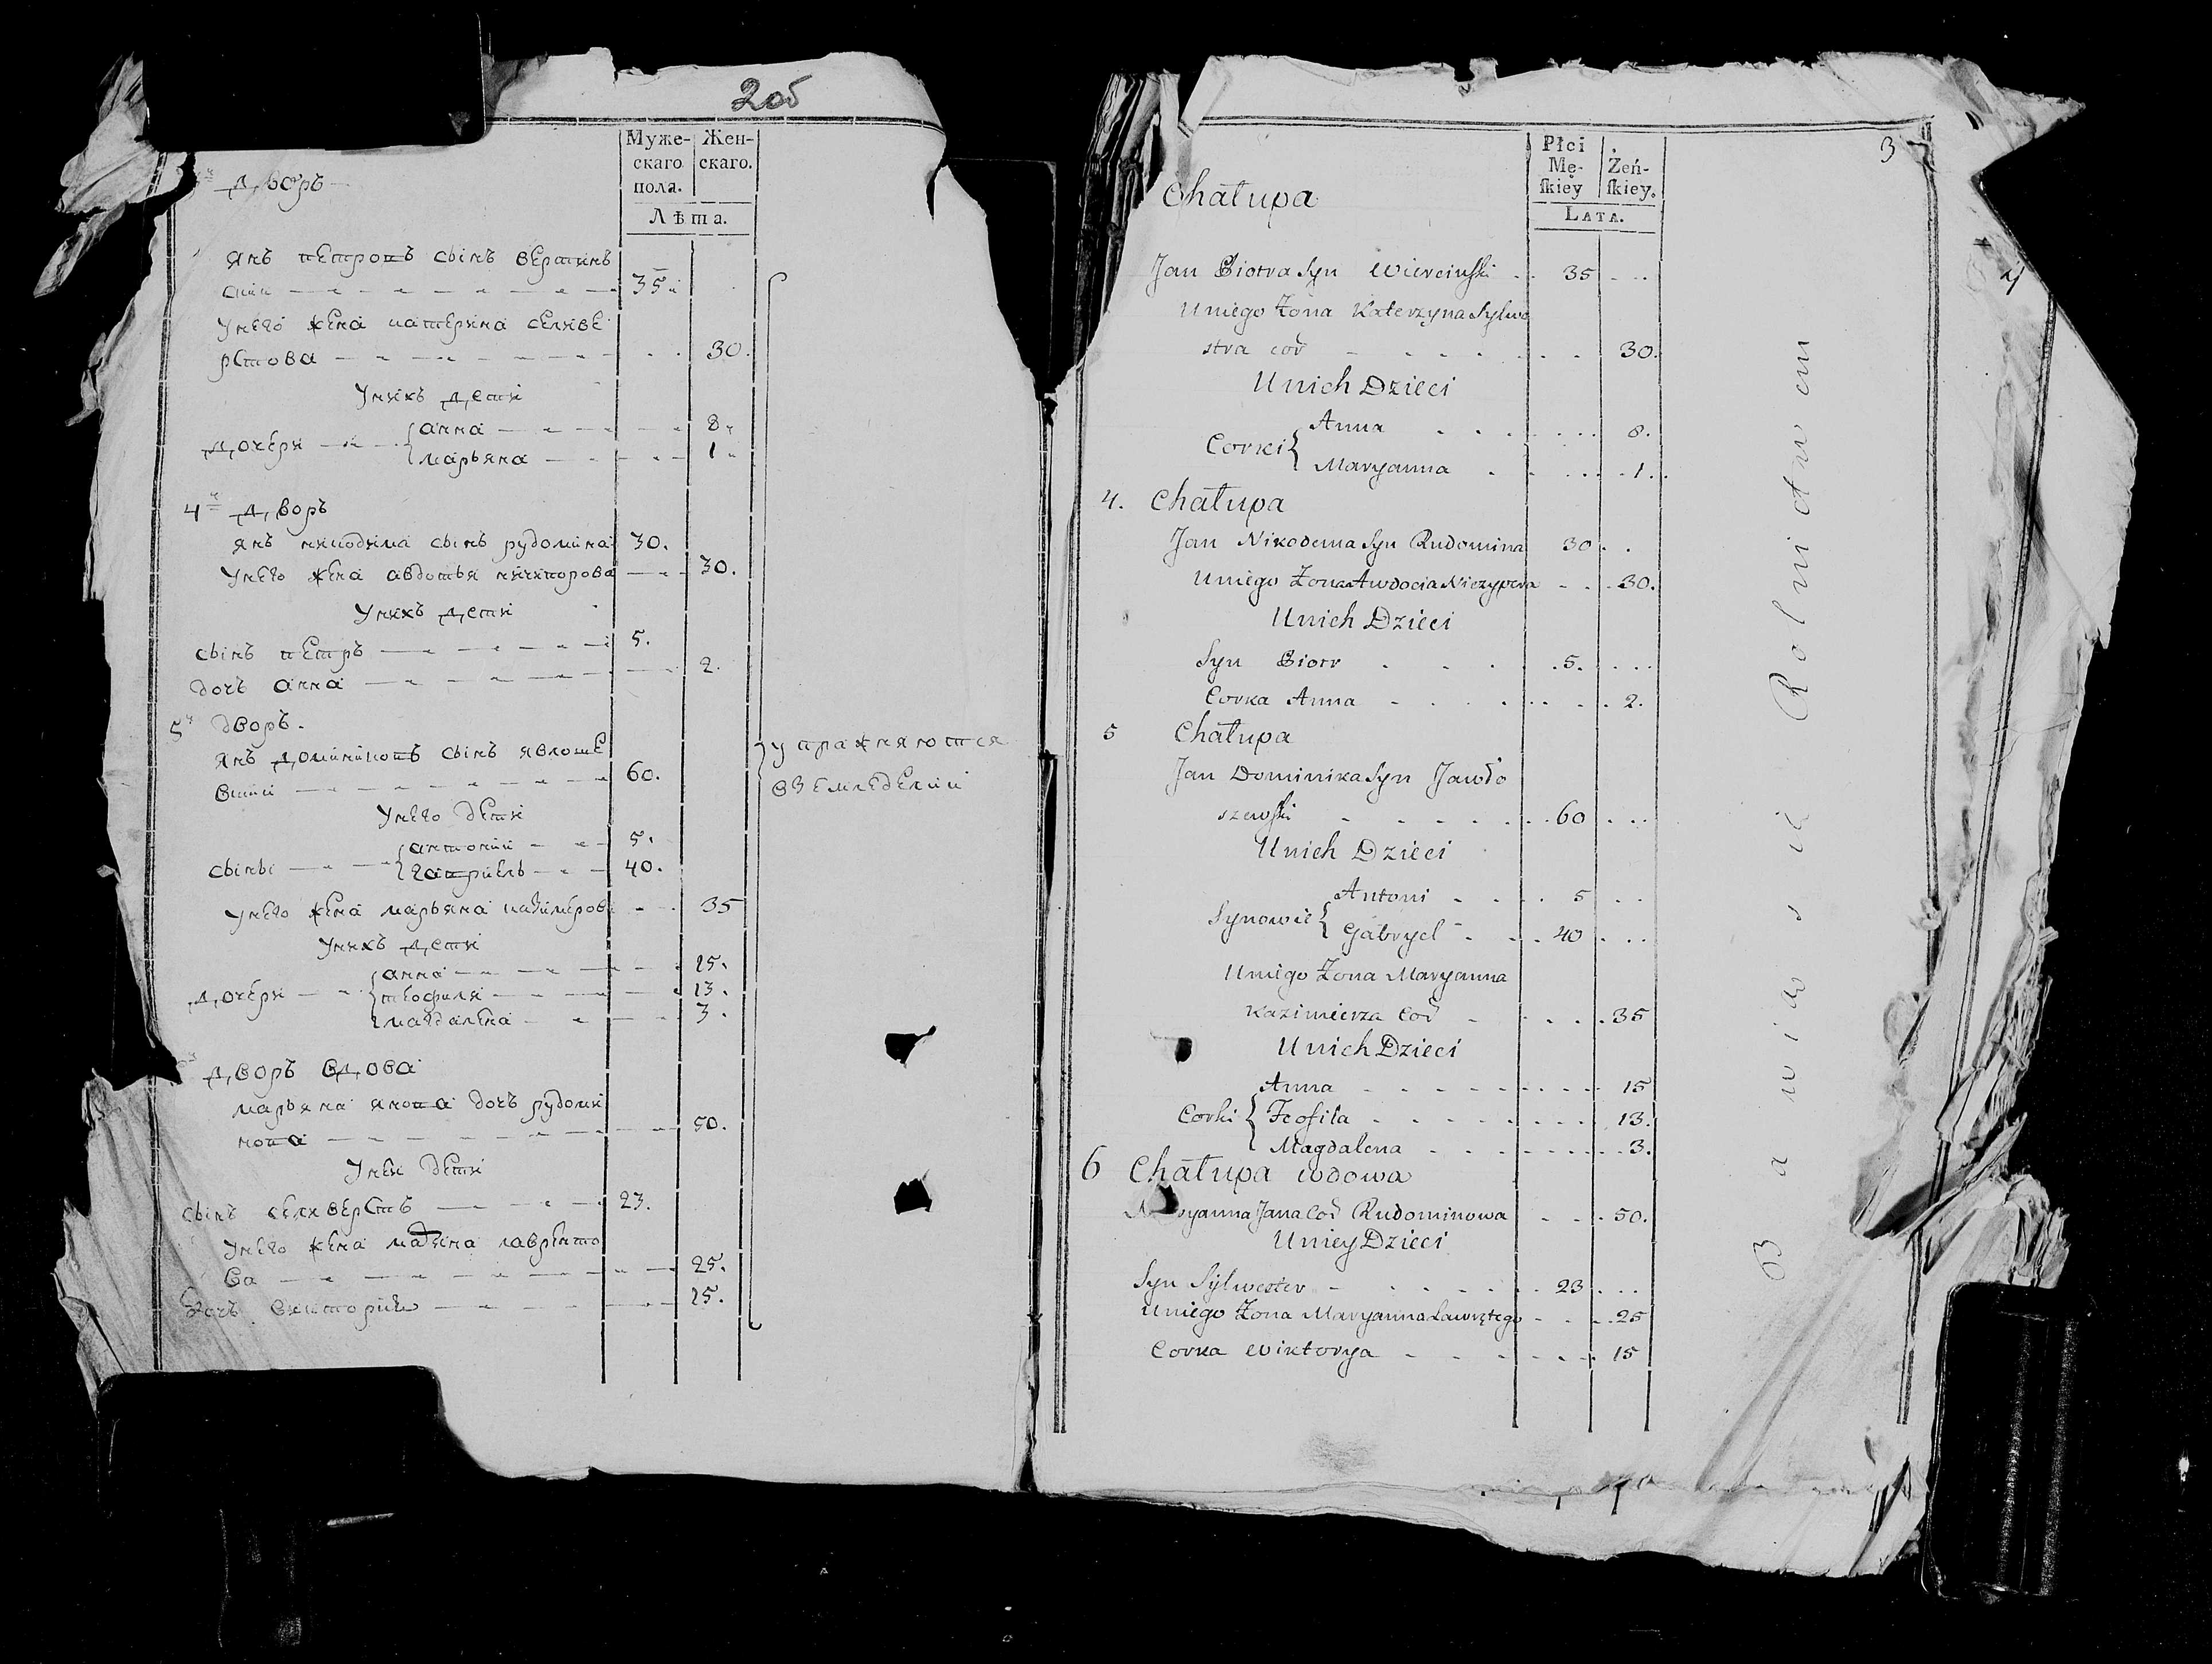 2об
Муже- Жен-
скаго скаго.
пола.
Лѣта.
дворъ
янъ петровъ сынъ вертинъ
скии 35
унего жена катерина селиве
рстова 30.
унихъ дети
дочери анна 8
марьяна 1
4й дворъ
янъ никодима сынъ рудомина 30.
унего жена авдотья ничипорова 30.
унихъ дети
сынъ петръ 5.
дочь анна 2.
5й дворъ.
янъ доминиковъ сынъ явлоше
вский 60.
унего дети
сыны антоний 5.
гавриель 40.
унего жена марьяна казимерова 35
унихъ дети
дочери анна 15.
теофиля 13.
магдалена 3.
дворъ вдова
марьяна янова дочь рудоми
нова 50.
унеи дети
сынъ селиверстъ 23.
унего жена марьяна лаврентьо
ва 25.
дочь виктория 15.
упражняются
вземледелии
3
4
Płci Żeń-
Mę- skiey.
skiey
LATA.
Chałupa
Jan Piotra Syn Wierciński 35
Uniego Żona Katerzyna Sylwe
stra cor 30.
Unich Dzieci
Corki Anna 8.
Maryanna 1.
4. Chałupa
Jan Nikodema Syn Rudomina 30
Uniego Żona Awdocia Niczypora 30.
Unich Dzieci
Syn Piotr 5.
Corka Anna 2.
5 Chałupa
Jan Dominika Syn Jawło
szewski 60
Unich Dzieci
Synowie Antoni 5
Gabryel 40
Uniego Żona Maryanna
Kazimierza Cor 35
Unich Dzieci
Anna 15
Corki Teofila 13.
Magdalena 3.
6 Chałupa wdowa
Maryanna Jana Cor Rudominowa 50.
Uniey Dzieci
Syn Sylwester 23
Uniego Żona Maryanna Lawrętego 25
Corka Wiktorya 15
Bawią się Rolnictwem